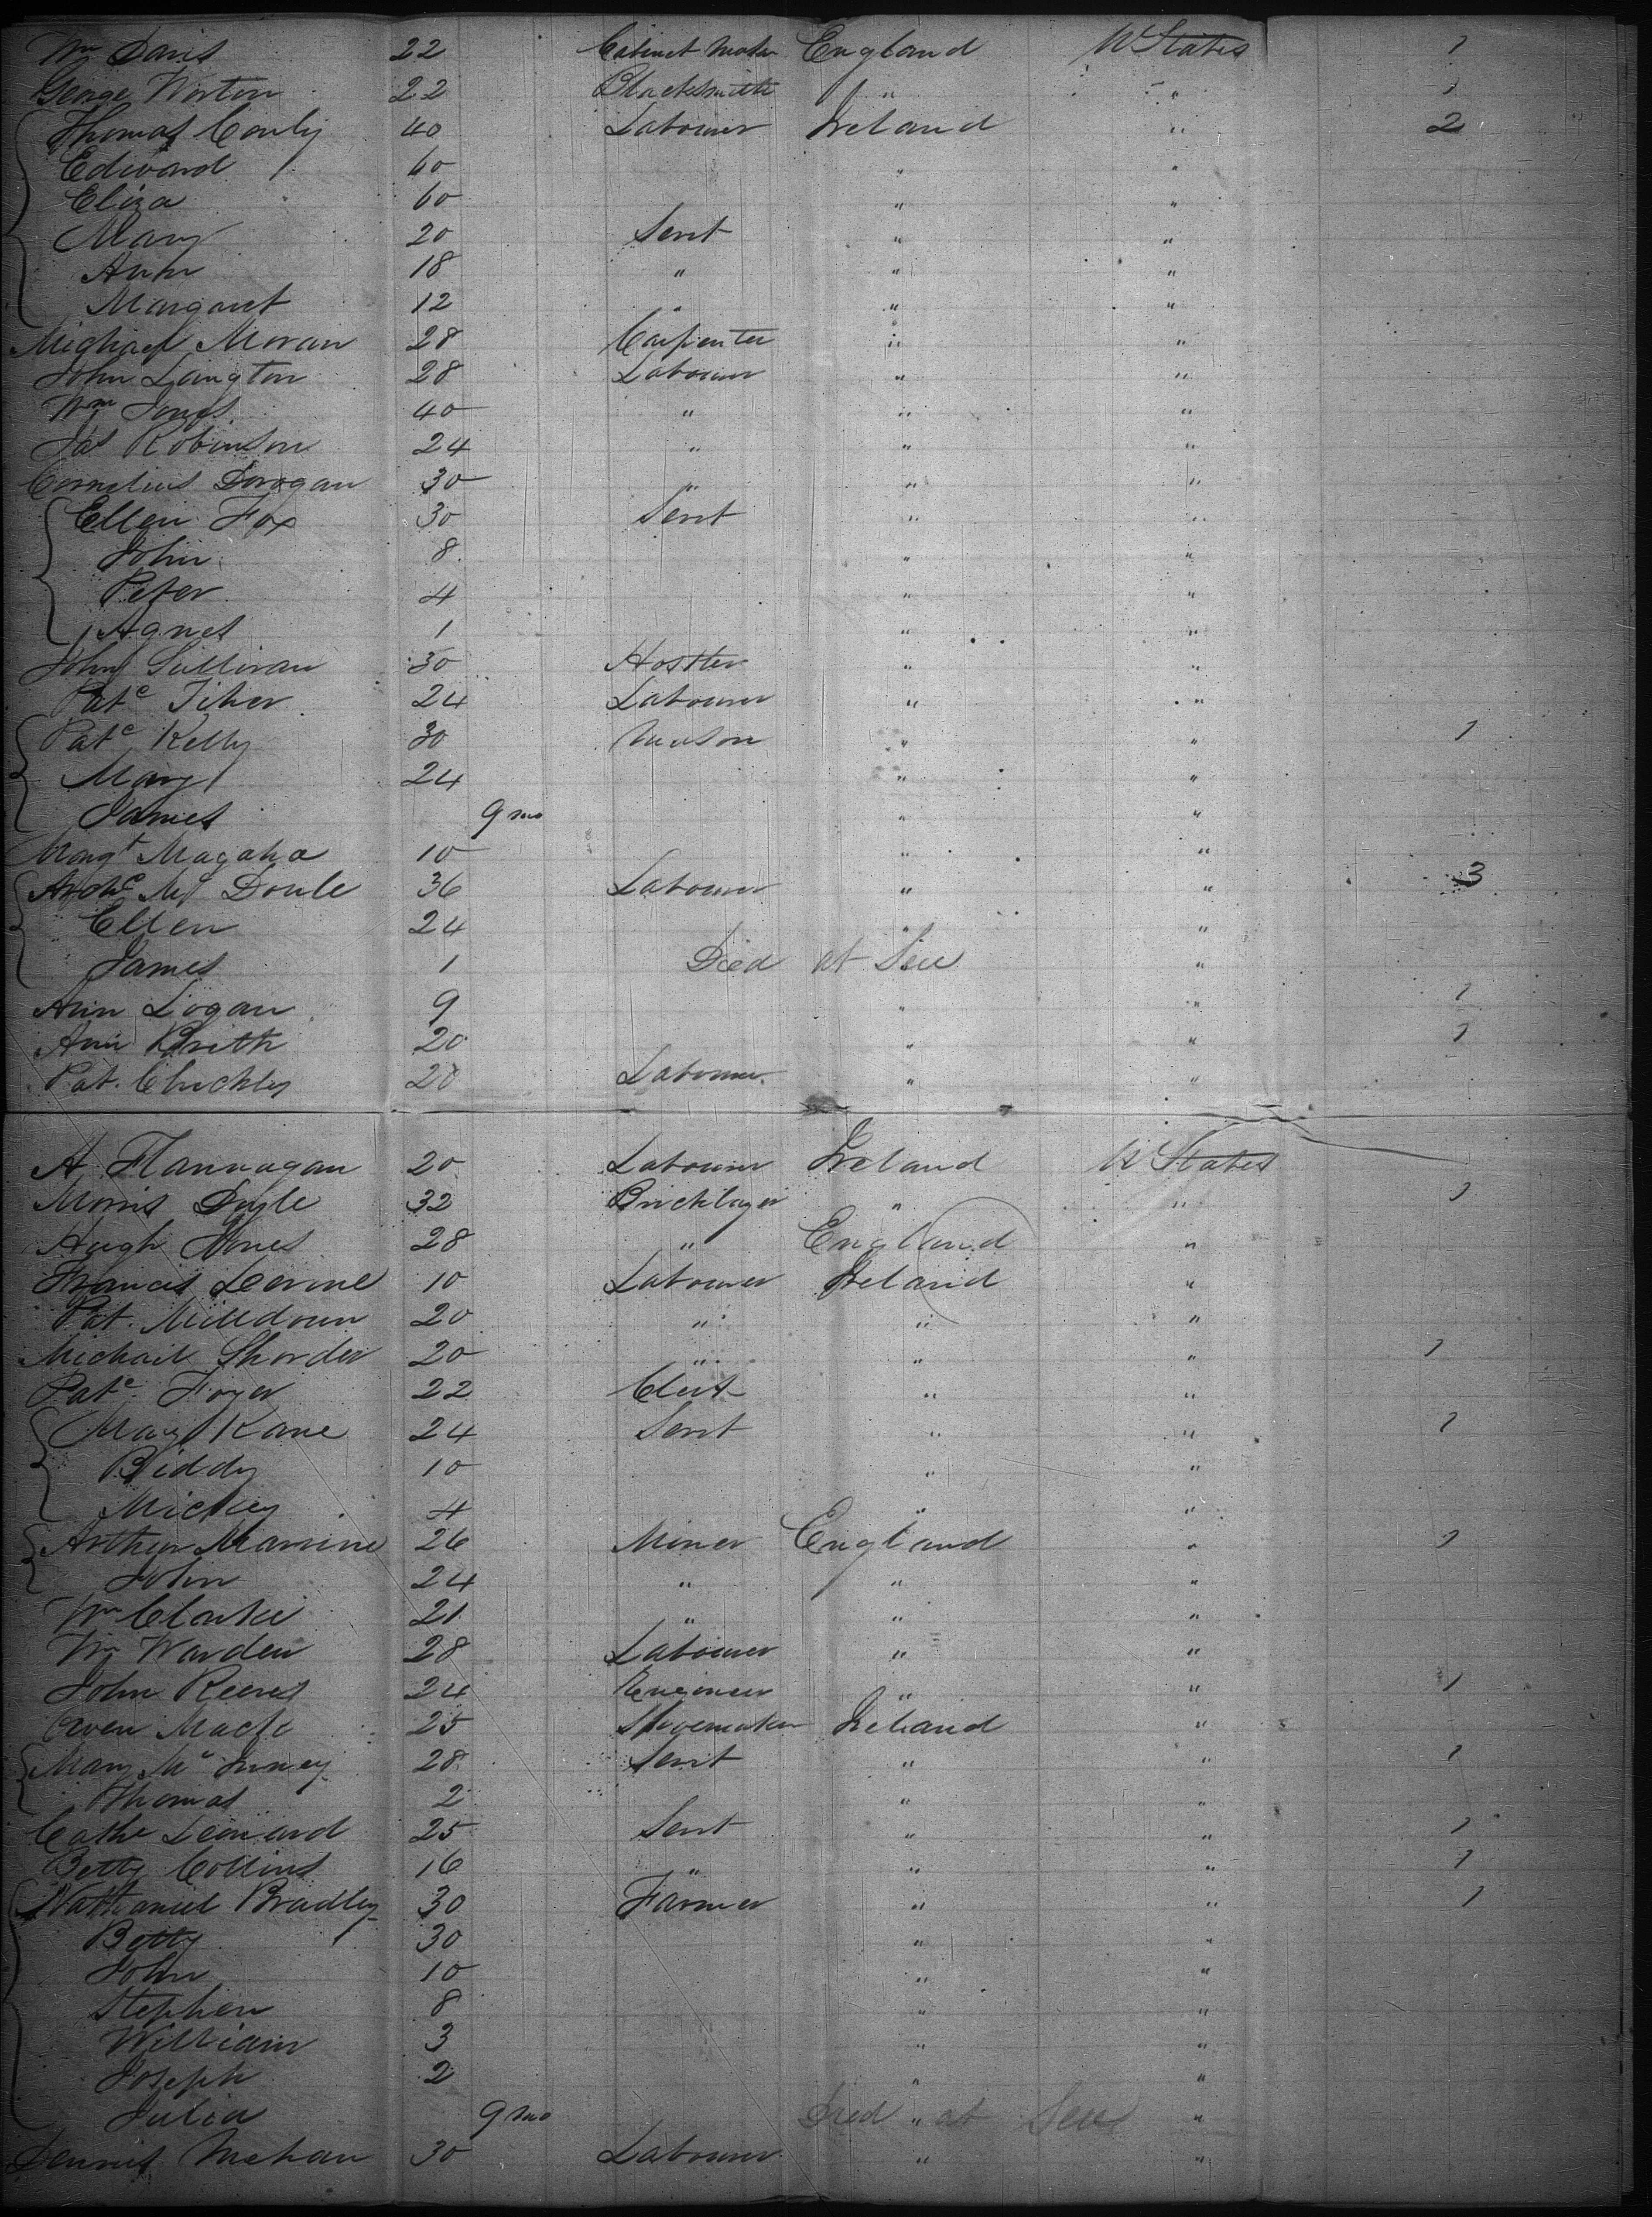 Wm Davis 22 Cabinet Maker England U States 1
George Worton 22 Blacksmith " " 1
Thomas Conly 40 Labourer Ireland " 2
Edward 60 " "
Eliza 60 " "
Mary 20 Servt " "
Ann 18 " " "
Margaret 12 " " "
Michael Moran 28 Carpenter " "
John Langton 28 Labourer " "
Wm Jones 40 " " "
Jas Robinson 24 " " "
Cornelius Dorogan 30 " " "
Ellen Fox 30 Servt " "
John 8 " "
Peter 4 " "
Agnes 1 " "
John Sullivan 30 Hostler " "
Patc Tiher 24 Labourer " "
Patc Kelly 30 Mason " " 1
Mary 24 " "
James 9 mo " "
Margt Magaha 10 " "
Mc Doule 36 Labourer " " 3
Ellen 24 " "
James 1 Died at Sea "
Ann Logan 9 " " 1
Ann Brith 20 " " 1
Pat. Chuckley 20 Labourer " "
A Flannagan 20 Labourer Ireland U States
Morris Doyle 32 Bricklayer " " 1
Hugh Jones 28 " England "
Francis Levine 10 Labourer Ireland "
Pat. Milldown 20 " " "
Michail Shorder 20 " " " 1
Patc Foyer 22 Clerk " "
Mary Kane 24 Servt " " 1
Biddy 10 " "
Mickey 4 " "
Arthur Marrine 26 Miner England " 1
John 24 " " "
Wm Clarke 21 " " "
Wm Warden 28 Labourer " "
John Reeves 24 Engineer " " 1
Owen Mack 25 Shoemaker Ireland "
Mary Mc Inney 28 Servt " " 1
Thomas 2 " "
Cathe Leonard 25 Servt " " 1
Betty Collins 16 " " " 1
Nathaniel Bradley 30 Farmer " " 1
Betty 30 " "
John 10 " "
Stephen 8 " "
William 3 " "
Joseph 2 " "
Julia 9 mo Died " at Sea "
Dennis Mehan 30 Labourer " "